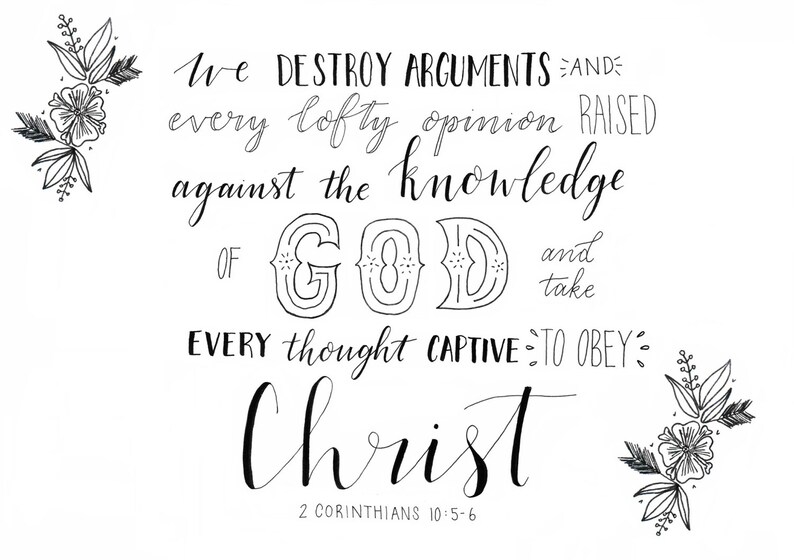 We DESTROY ARGUMENTS AND
every lofty opinion RAISED
against the knowledge
OF GOD and take
EVERY thought CAPTIVE TO OBEY
Christ
2 CORINTHIANS 10:5-6